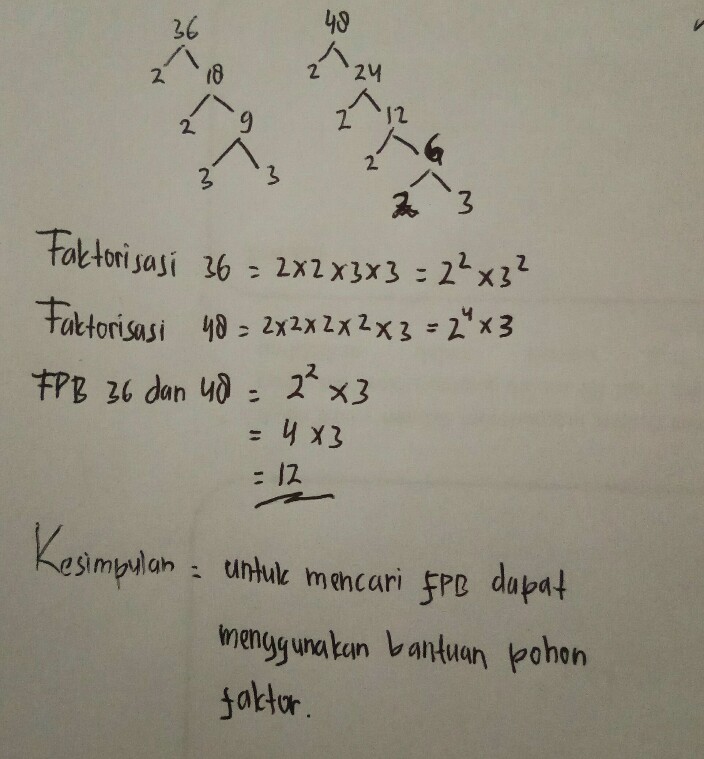 36 48
2 18 2 24
2 9 2 12
3 3 2 6
2 3
Faktorisasi 36 = 2×2×3×3 = 2² × 3²
Faktorisasi 48 = 2×2×2×2×3 = 2⁴ × 3
FPB 36 dan 48 = 2² × 3
= 4 × 3
= 12
Kesimpulan = untuk mencari FPB dapat
menggunakan bantuan pohon
faktor.